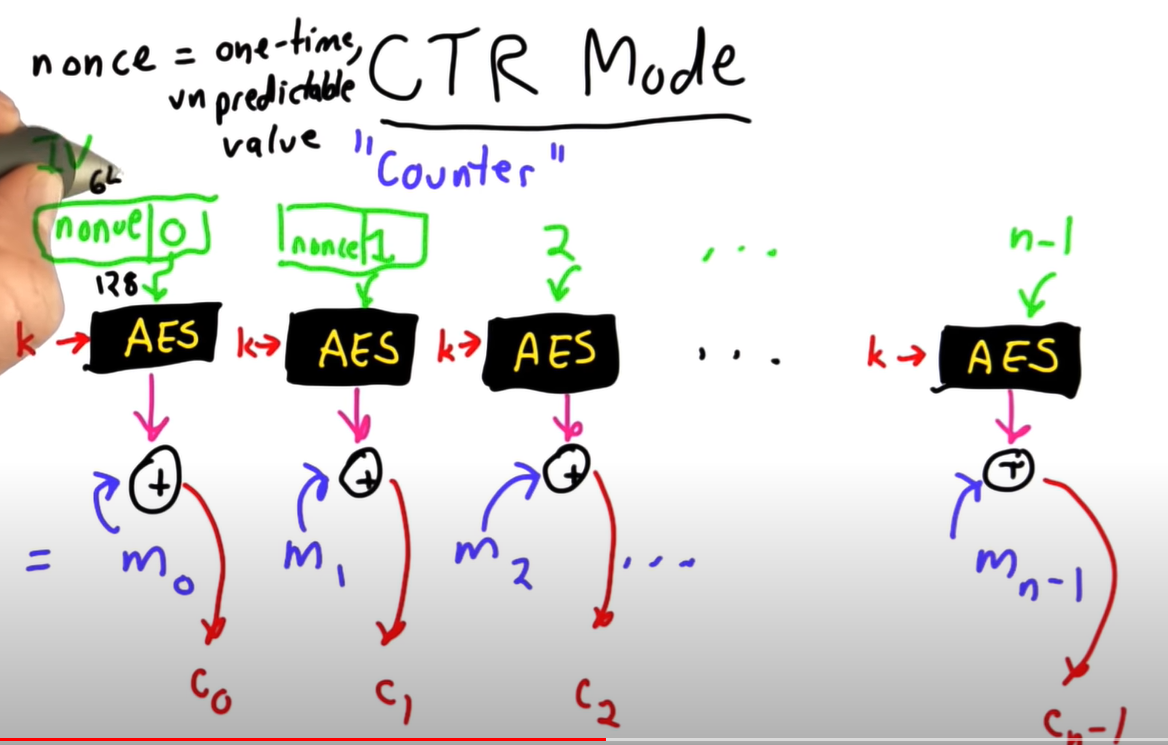 nonce = one-time,
unpredictable
value
CTR Mode
"Counter"
IV
64
nonce 0
nonce 1
2
...
n-1
128
k → AES
k → AES
k → AES
...
k → AES
+
+
+
+
= m0
m1
m2
...
mn-1
c0
c1
c2
cn-1